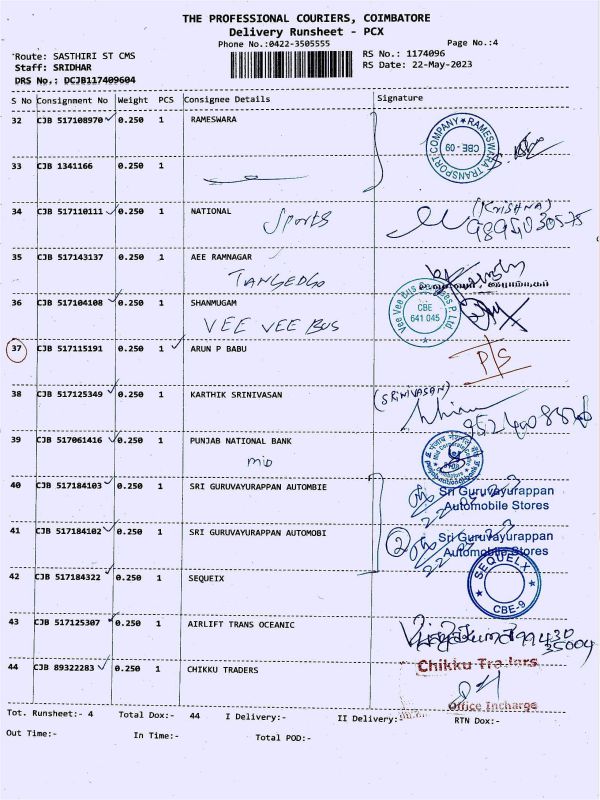 THE PROFESSIONAL COURIERS, COIMBATORE
Delivery Runsheet - PCX
Phone No.:0422-3505555 Page No.:4
Route: SASTHIRI ST CMS RS No.: 1174096
Staff: SRIDHAR RS Date: 22-May-2023
DRS No.: DCJB117409604
S No Consignment No Weight PCS Consignee Details Signature
32 CJB 517108970 0.250 1 RAMESWARA
RAMESWARA TRANSPORT COMPANY CBE - 09
33 CJB 1341166 0.250 1
34 CJB 517110111 0.250 1 NATIONAL Sports (KRISHNA)
35 CJB 517143137 0.250 1 AEE RAMNAGAR
TANGEDGO
36 CJB 517104108 0.250 1 SHANMUGAM
VEE VEE BUS
CBE
641 045
37 CJB 517115191 0.250 1 ARUN P BABU
P/S
38 CJB 517125349 0.250 1 KARTHIK SRINIVASAN (SRINIVASAN)
39 CJB 517061416 0.250 1 PUNJAB NATIONAL BANK
40 CJB 517184103 0.250 1 SRI GURUVAYURAPPAN AUTOMBIE
Sri Guruvayurappan
Automobile Stores
41 CJB 517184102 0.250 1 SRI GURUVAYURAPPAN AUTOMOBI
2
Sri Guruvayurappan
Automobile Stores
42 CJB 517184322 0.250 1 SEQUEIX
SEQUELX
CBE-9
43 CJB 517125307 0.250 1 AIRLIFT TRANS OCEANIC
44 CJB 89322283 0.250 1 CHIKKU TRADERS
Chikku Traders
Office Incharge
Tot. Runsheet:- 4 Total Dox:- 44 I Delivery:- II Delivery:- RTN Dox:-
Out Time:- In Time:- Total POD:-